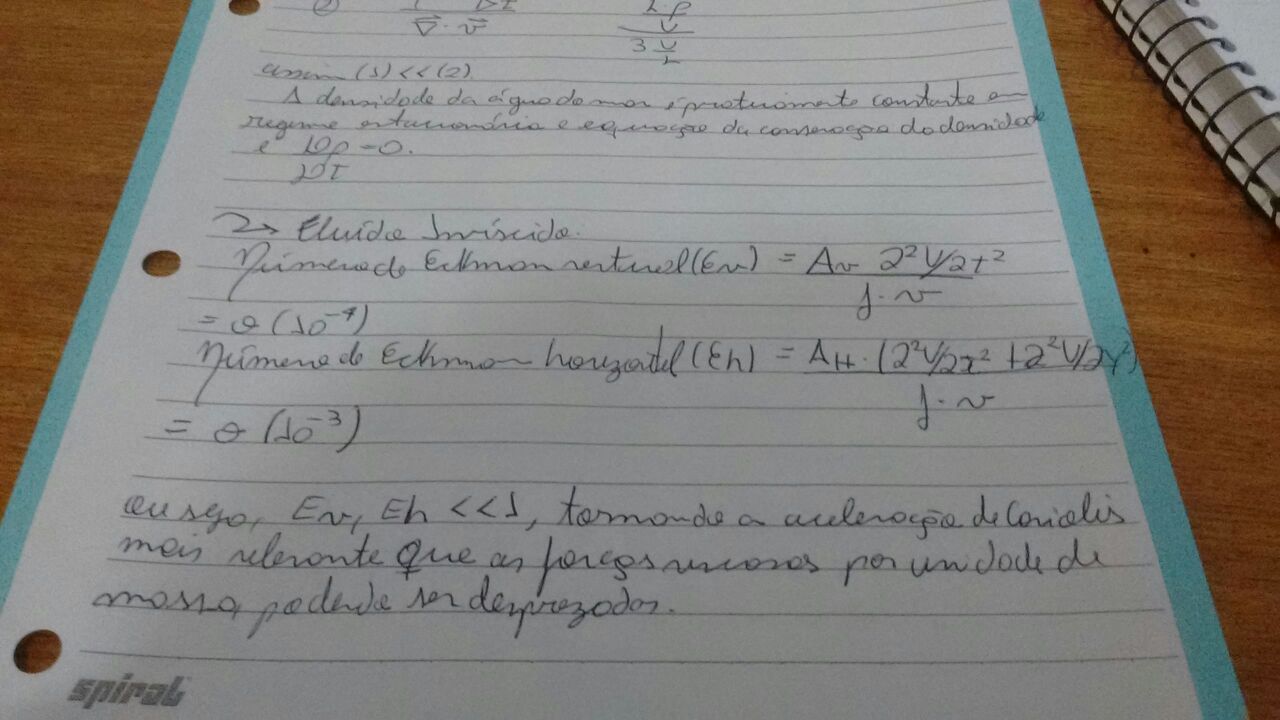 ② 1 Dρ
ρ Dt
∇⃗ · v⃗
U
3 U
L
assim (1) << (2)
A densidade da água do mar é praticamente constante em
regime estacionário e equação da conservação da densidade
é Dρ = 0.
Dt
2 → Fluído Invíscido.
Número de Eckman vertical (Ev) = Av ∂²V/∂z²
f · v
= O (10⁻⁴)
Número de Eckman horizontal (Eh) = AH · (∂²V/∂x² + ∂²V/∂y²)
f · v
= O (10⁻³)
ou seja, Ev, Eh << 1, tornando a aceleração de Coriolis
mais relevante que as forças viscosas por unidade de
massa, podendo ser desprezadas.
spiral